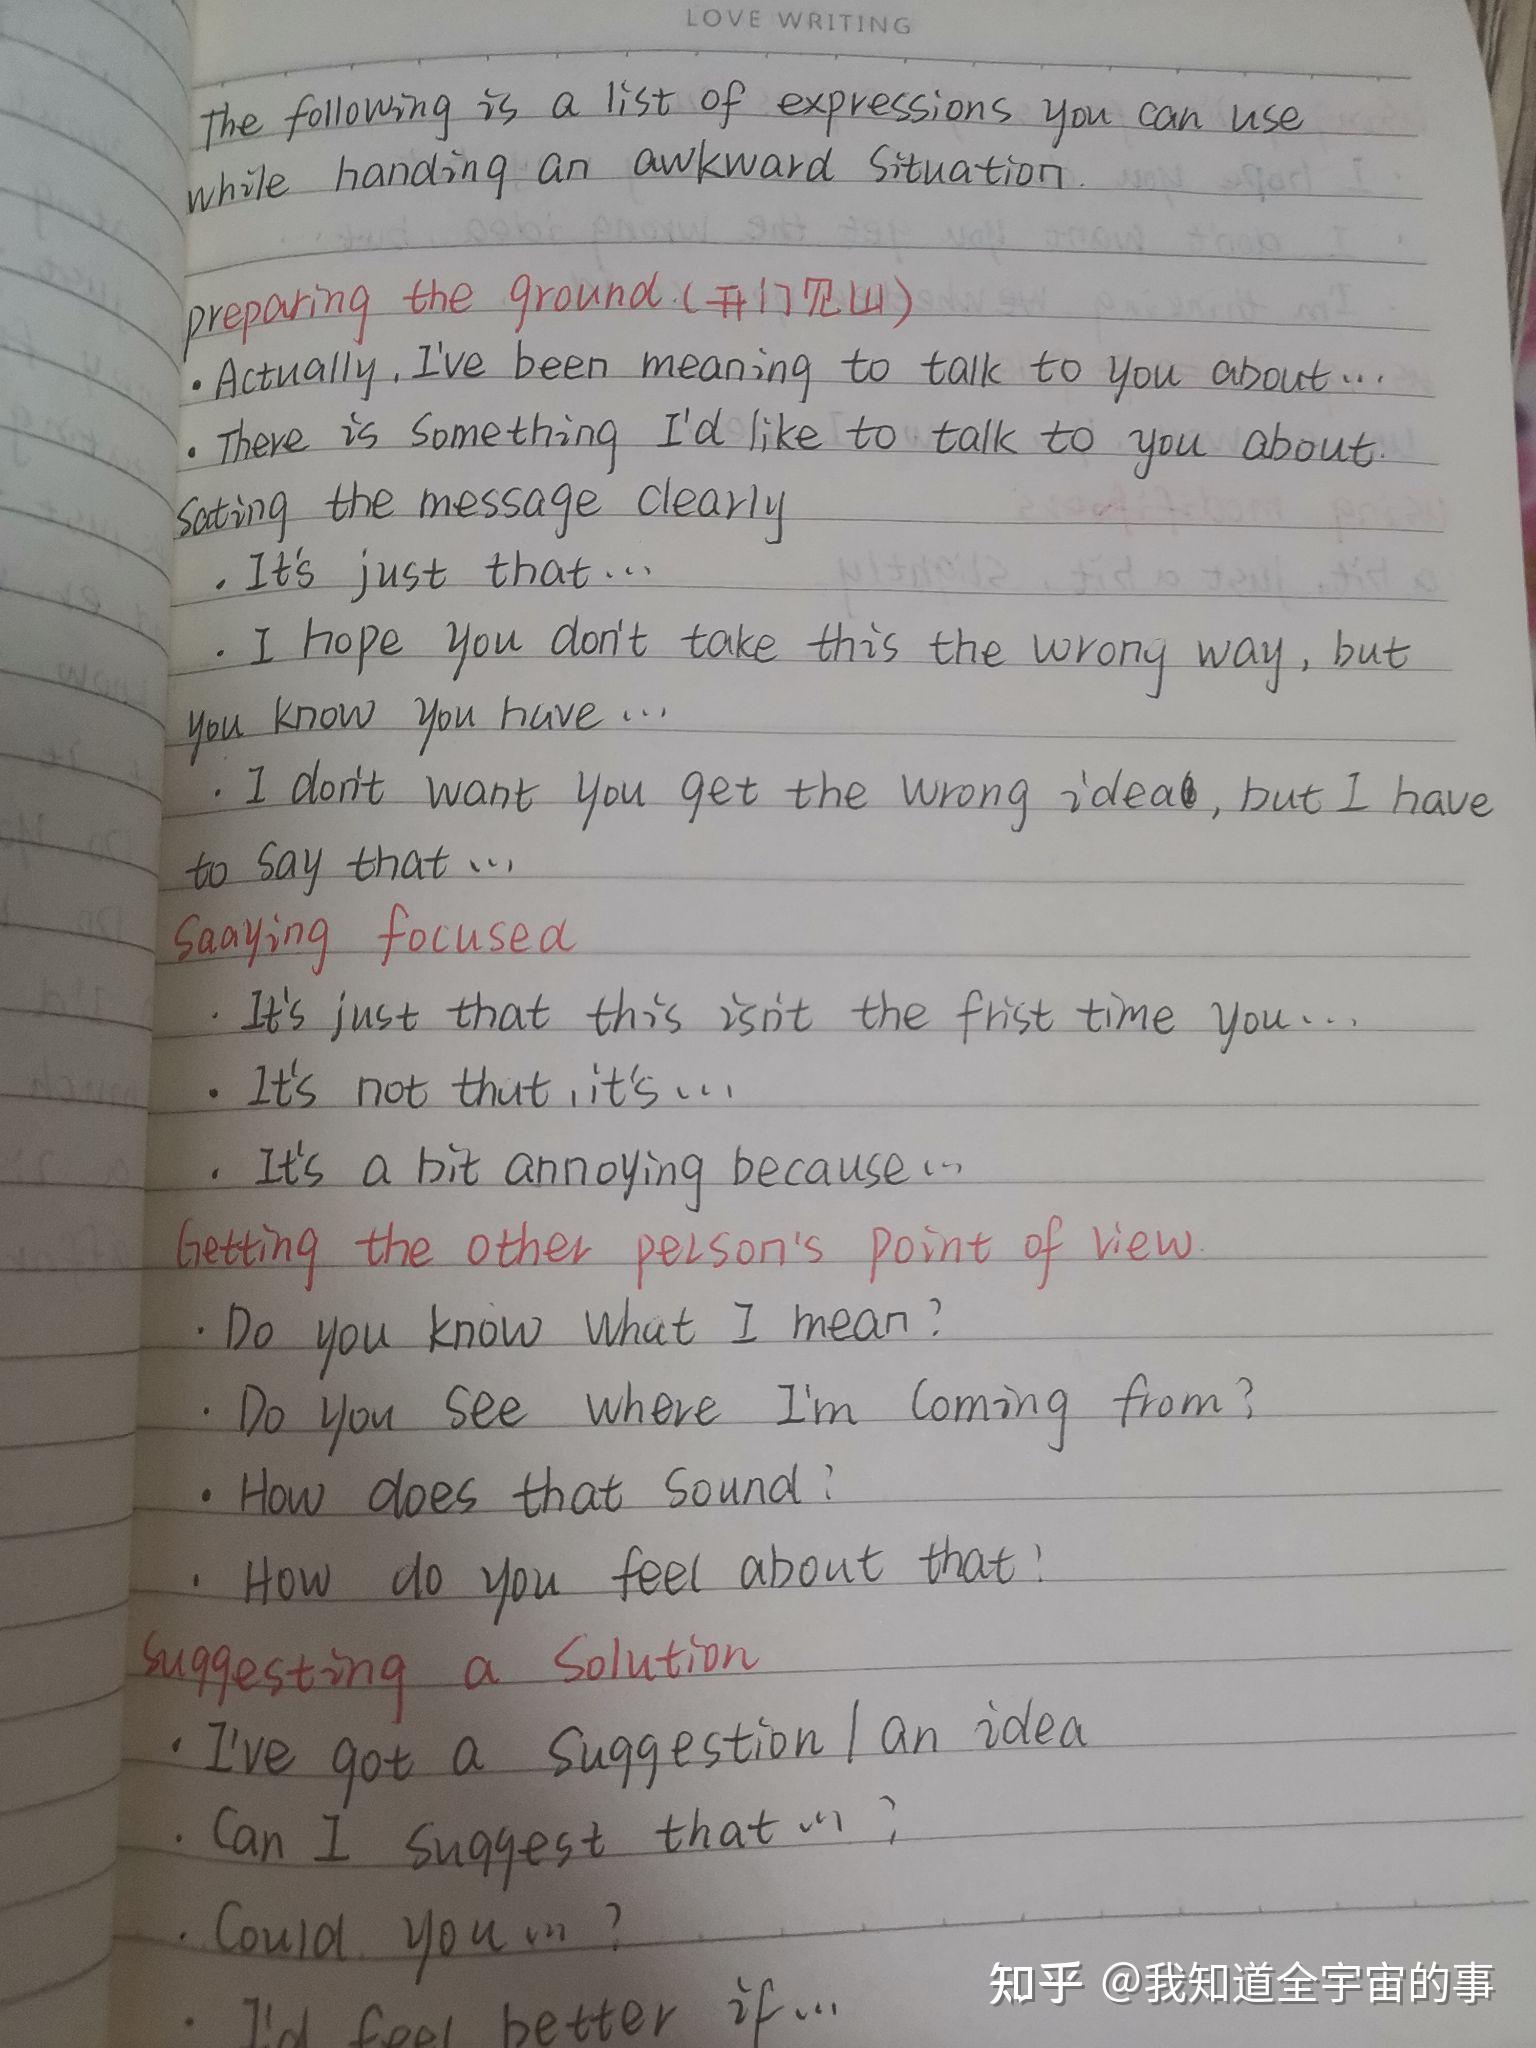 LOVE WRITING
The following is a list of expressions you can use
while handing an awkward situation.
preparing the ground.(开门见山)
· Actually, I've been meaning to talk to you about...
· There is something I'd like to talk to you about.
Sating the message clearly
· It's just that...
· I hope you don't take this the wrong way, but
you know you have...
· I don't want you get the wrong idea, but I have
to say that...
Saaying focused
· It's just that this isn't the frist time you...
· It's not that, it's...
· It's a bit annoying because...
Getting the other person's point of view.
· Do you know what I mean?
· Do you see where I'm coming from?
· How does that sound?
· How do you feel about that?
Suggesting a solution
· I've got a suggestion / an idea
· Can I suggest that...?
· Could you...?
· I'd feel better if...
知乎 @我知道全宇宙的事